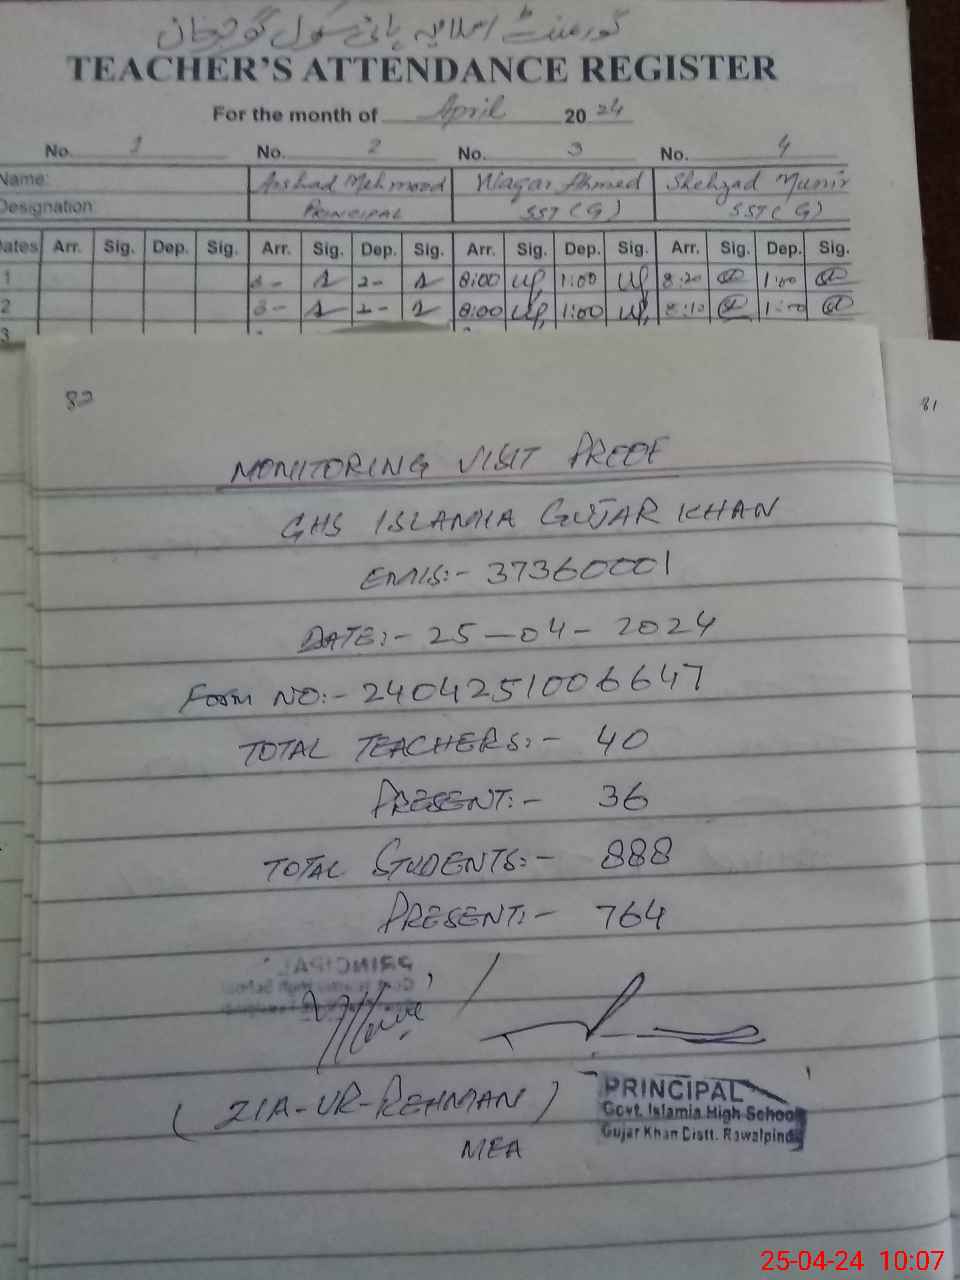 گورنمنٹ اسلامیہ ہائی سکول گوجرخان
TEACHER'S ATTENDANCE REGISTER
For the month of April 2024
No. 1 No. 2 No. 3 No. 4
Name: Arshad Mehmood Waqar Ahmed Shehzad Munir
Designation PRINCIPAL SST (G) SST (G)
Dates Arr. Sig. Dep. Sig. Arr. Sig. Dep. Sig. Arr. Sig. Dep. Sig. Arr. Sig. Dep. Sig.
1 8- 2- 8:00 1:00 8:20 1:00
2 8- 2- 8:00 1:00 8:10 1:00
3
82
81
MONITORING VISIT PROOF
GHS ISLAMIA GUJAR KHAN
EMIS:- 37360001
DATE:- 25-04-2024
Form NO:- 2404251006647
TOTAL TEACHERS:- 40
PRESENT:- 36
TOTAL STUDENTS:- 888
PRESENT:- 764
(ZIA-UR-REHMAN)
MEA
PRINCIPAL
Govt. Islamia High School
Gujar Khan Distt. Rawalpindi
25-04-24 10:07